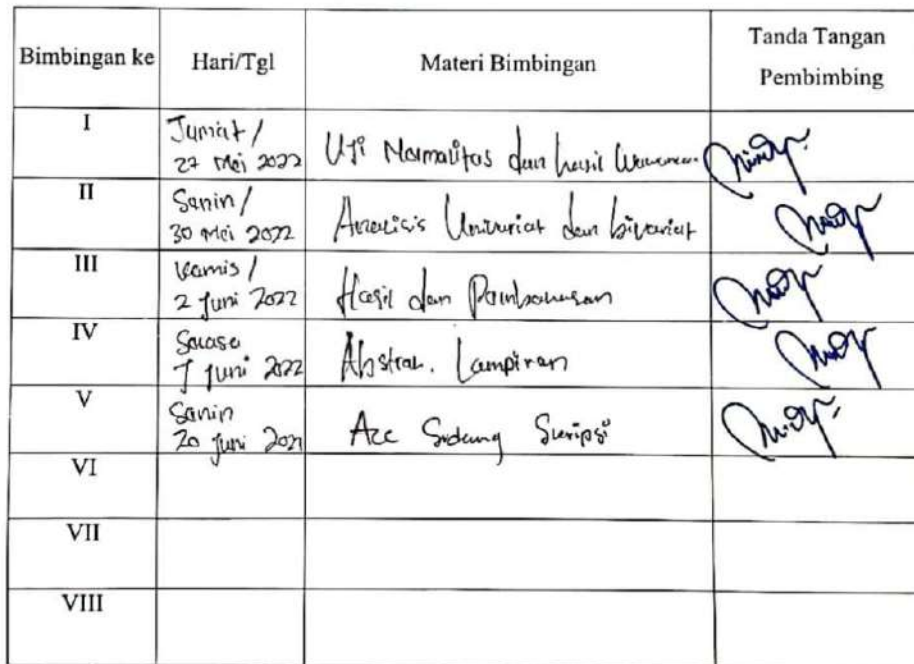 Bimbingan ke Hari/Tgl Materi Bimbingan Tanda Tangan
Pembimbing
I Jumat /
27 Mei 2022 Uji Normalitas dan hasil
II Senin /
30 Mei 2022 Analisis Univariat dan bivariat
III Kamis /
2 Juni 2022 Hasil dan Pembahasan
IV Selasa
7 Juni 2022 Abstrak. Lampiran
V Senin
20 Juni Acc Sidang Skripsi
VI
VII
VIII